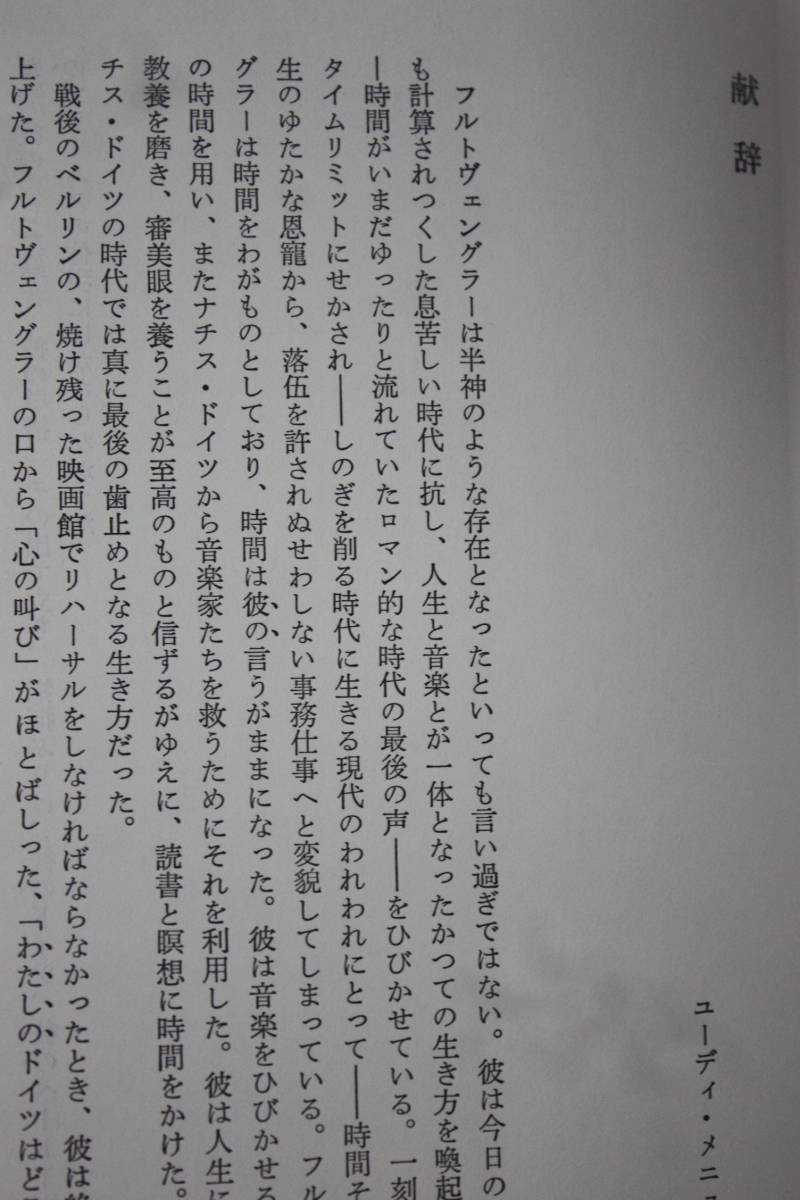 献辞
ユーディ・メニ
フルトヴェングラーは半神のような存在となったといっても言い過ぎではない。彼は今日の
も計算されつくした息苦しい時代に抗し、人生と音楽とが一体となったかつての生き方を喚起
―時間がいまだゆったりと流れていたロマン的な時代の最後の声――をひびかせている。一刻
タイムリミットにせかされ――しのぎを削る時代に生きる現代のわれわれにとって――時間そ
生のゆたかな恩寵から、落伍を許されぬせわしない事務仕事へと変貌してしまっている。フル
グラーは時間をわがものとしており、時間は彼の言うがままになった。彼は音楽をひびかせる
の時間を用い、またナチス・ドイツから音楽家たちを救うためにそれを利用した。彼は人生に
教養を磨き、審美眼を養うことが至高のものと信ずるがゆえに、読書と瞑想に時間をかけた。
チス・ドイツの時代では真に最後の歯止めとなる生き方だった。
戦後のベルリンの、焼け残った映画館でリハーサルをしなければならなかったとき、彼は
上げた。フルトヴェングラーの口から「心の叫び」がほとばしった、「わたしのドイツはど